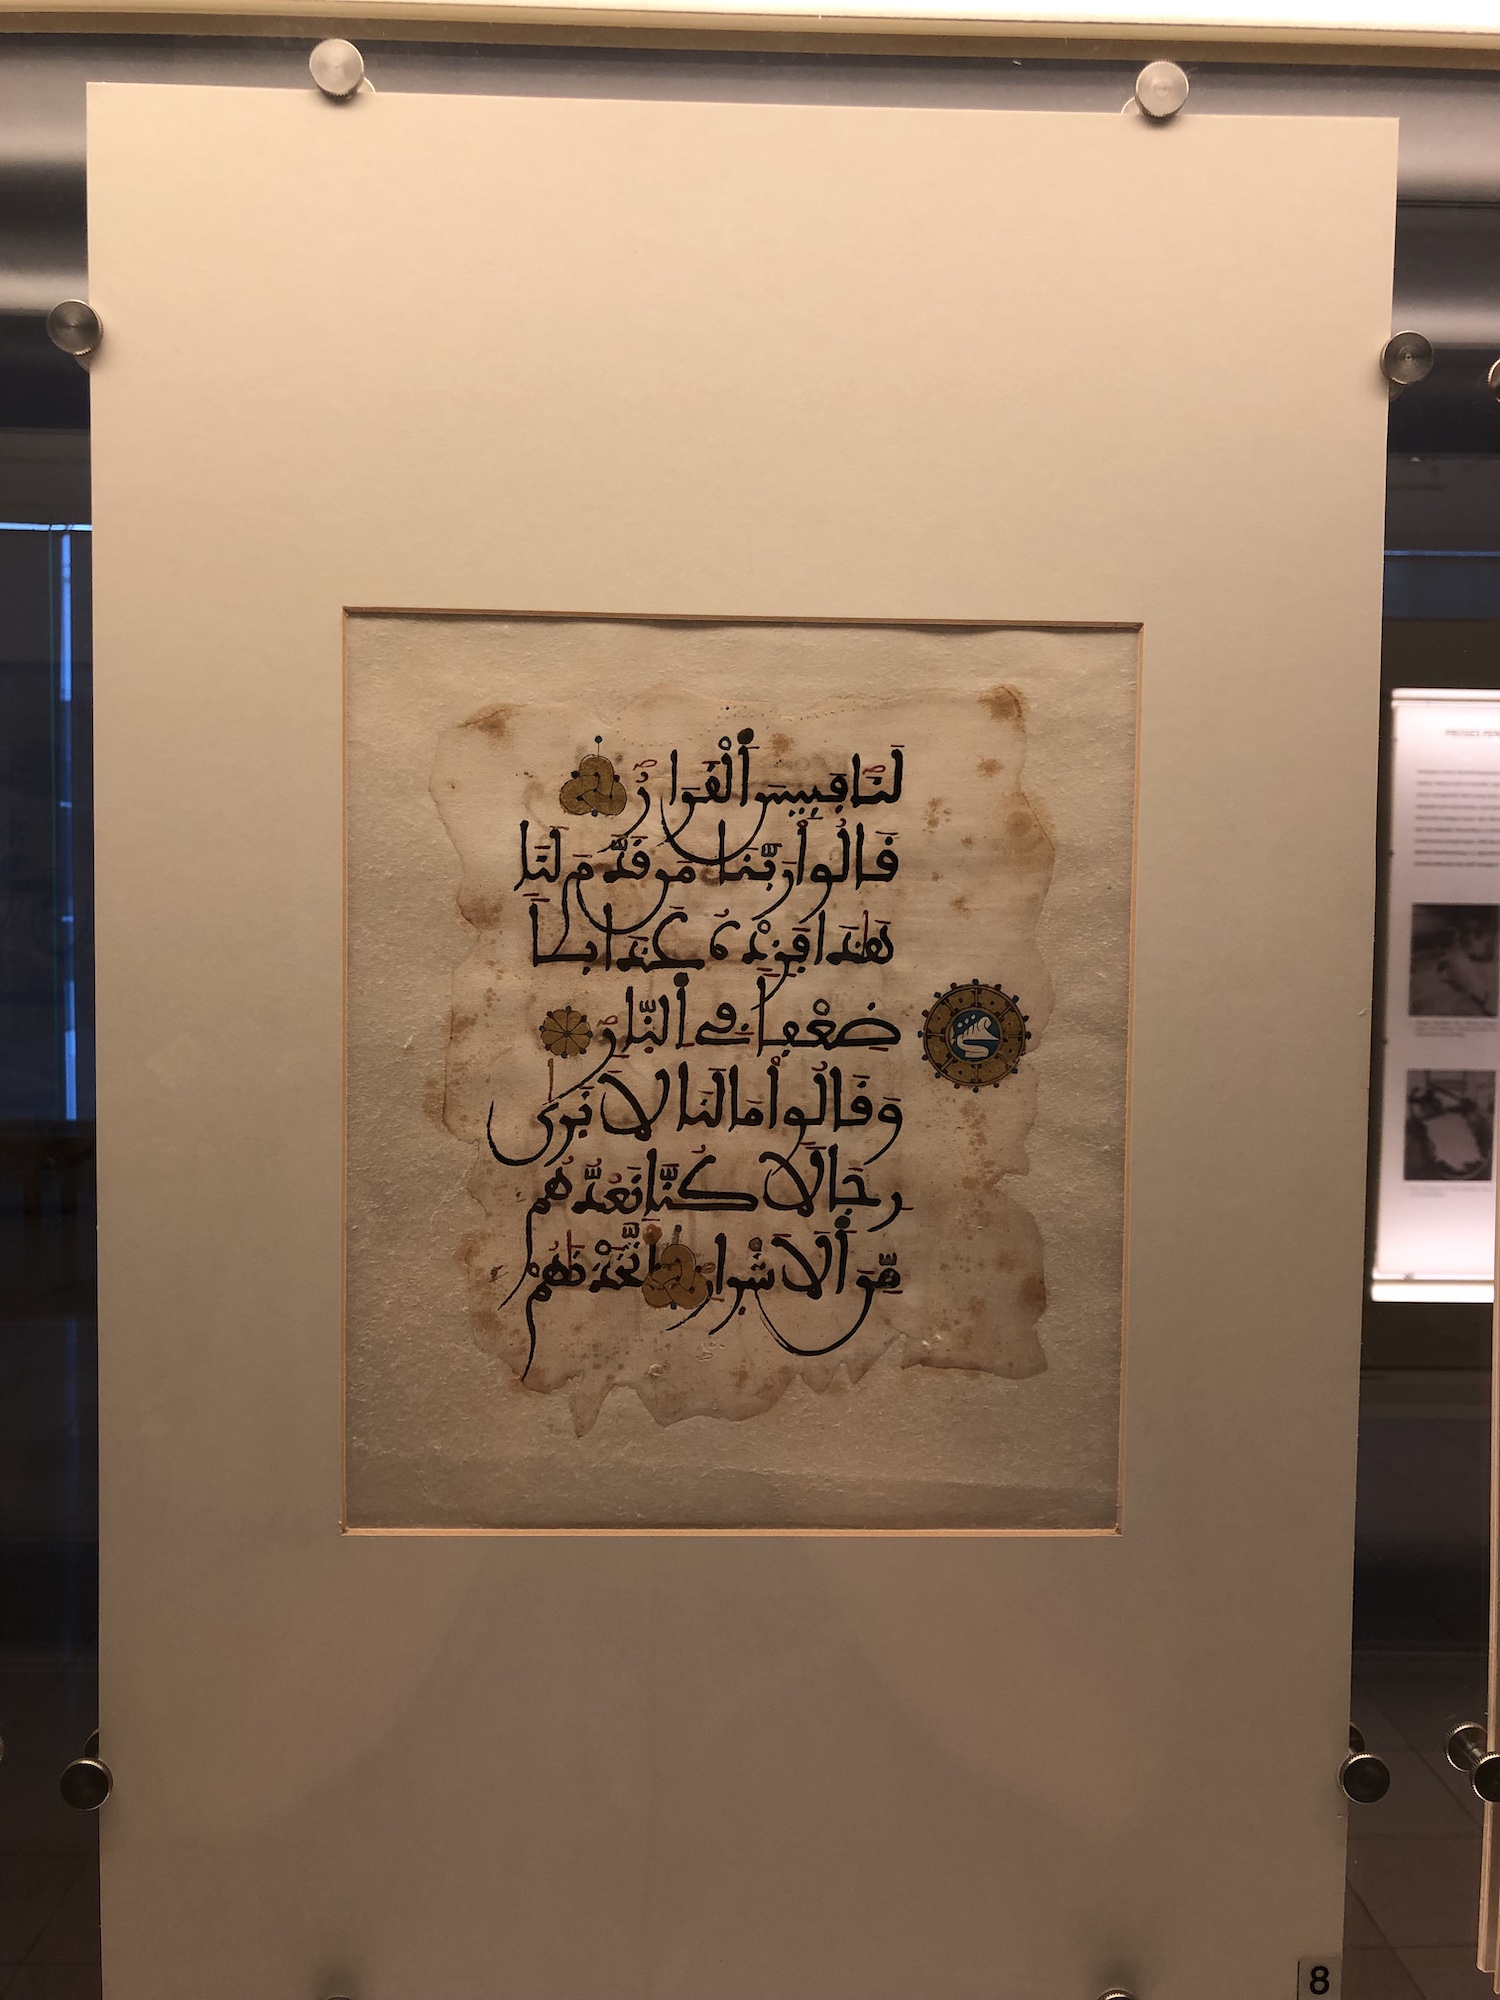 لَنَا فَبِيسَ ٱلْقَرَارُ
قَالُواْ رَبَّنَا مَن قَدَّمَ لَنَا
هَٰذَا فَزِدْهُ عَذَابًا
ضِعْفًا فِي ٱلنَّارِ
وَقَالُواْ مَا لَنَا لَا نَرَىٰ
رِجَالًا كُنَّا نَعُدُّهُم
مِّنَ ٱلَاشْرَارِ أَتَّخَذْنَٰهُمْ
8